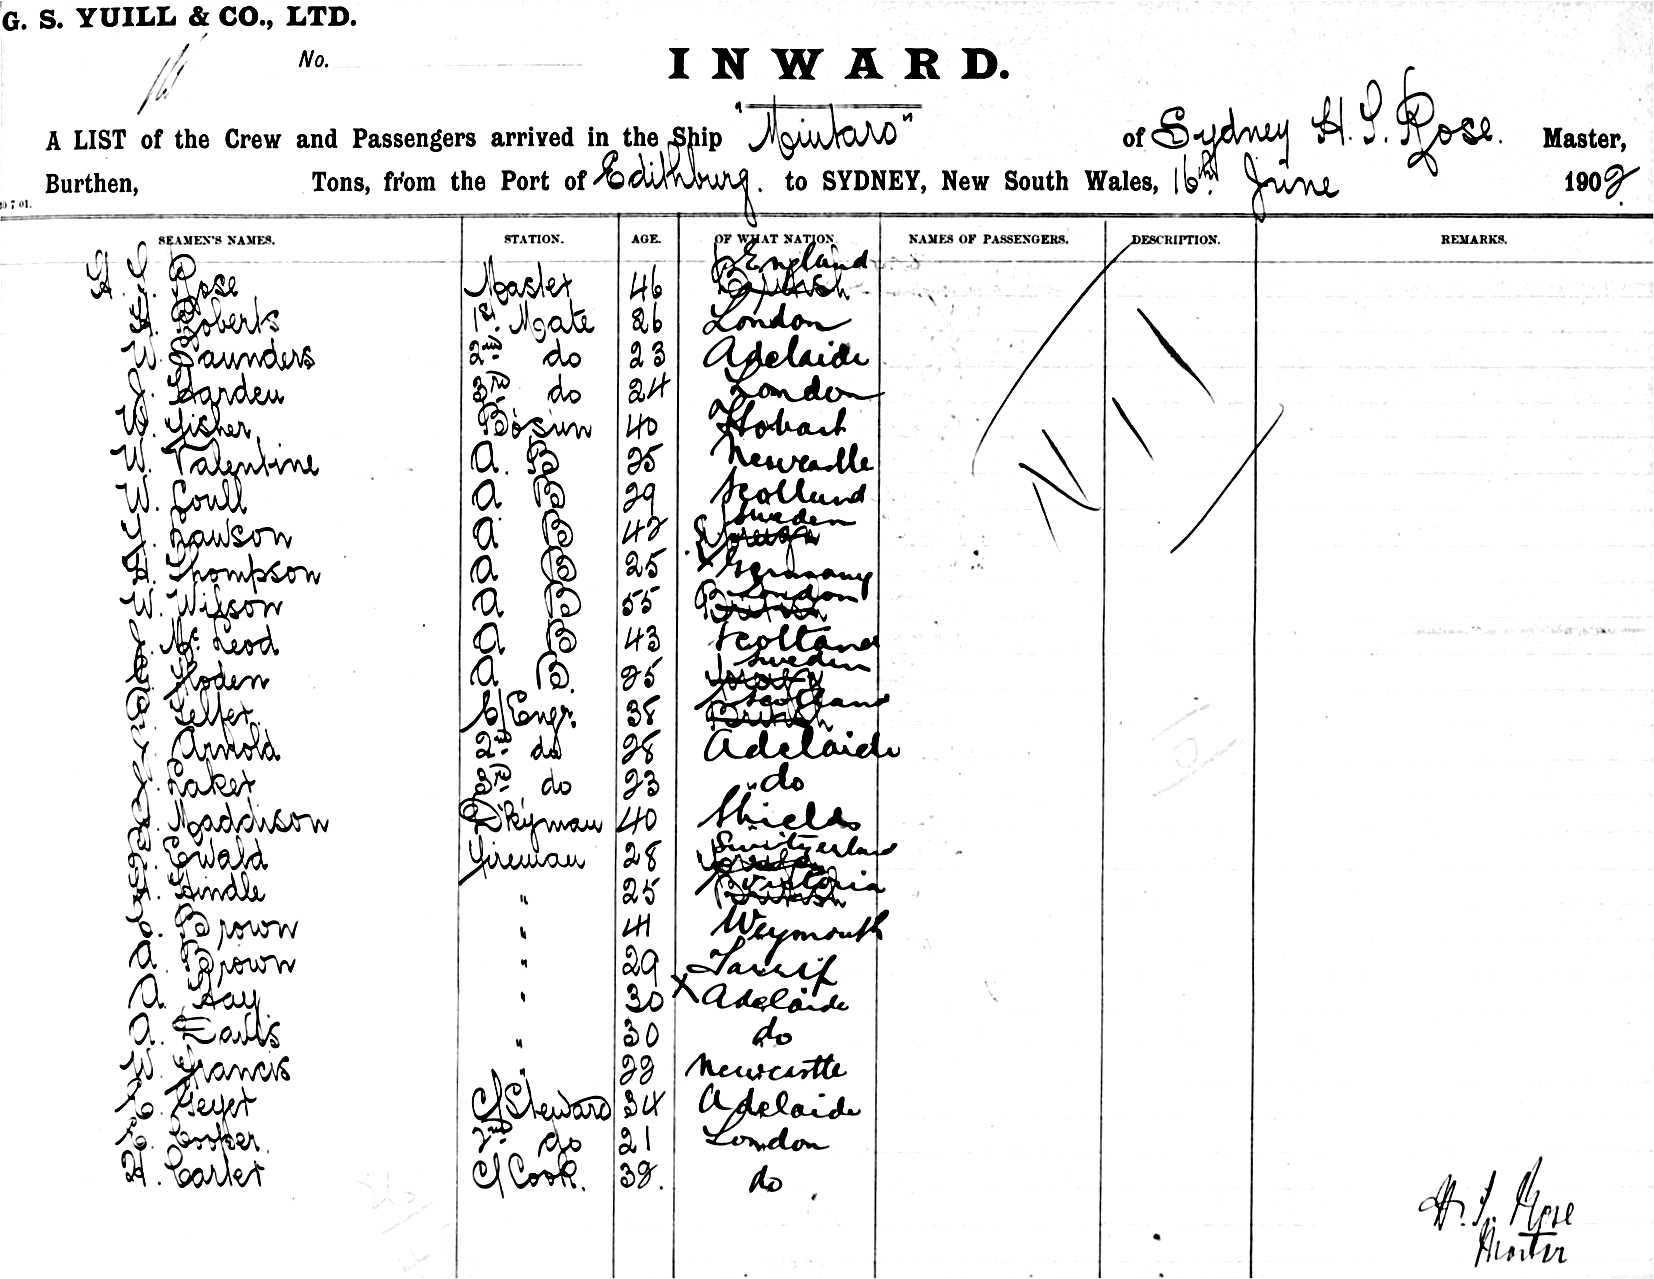 G. S. YUILL & CO., LTD.
No.
INWARD.
A LIST of the Crew and Passengers arrived in the Ship "Mintaro" of Sydney H. S. Rose. Master,
Burthen, Tons, from the Port of Edithburg. to SYDNEY, New South Wales, 16th June 1902.
SEAMEN'S NAMES. STATION. AGE. OF WHAT NATION NAMES OF PASSENGERS. DESCRIPTION. REMARKS.
England
H. S. Rose Master 46 British
Roberts 1st Mate 26 London
W. Saunders 2nd do 23 Adelaide
J. Harden 3rd do 24 London
W. Fisher Bosun 40 Hobart
W. Valentine A. B 25 Newcastle
W. Coull A B 29 Scotland
Sweden
Lawson A B 42
H. Thompson A B 25 Germany
London
W. Wilson A B 55 British
J. McLeod A B 43 Scotland
Sweden
Floden A B. 25
Scotland
Telfer C/Engr. 38 British
Arnold 2nd do 28 Adelaide
J. Laker 3rd do 23 "do
Maddison Dkyman 40 Shields
Switzerland
Ewald Fireman 28
Victoria
Hindle " 25 British
Brown " 41 Weymouth
A. Brown " 29
A. Hay " 30 X Adelaide
A. " 30 do
W. Francis " 22 Newcastle
Geyer C/Steward 34 Adelaide
Cooper 2nd do 21 London
H. Carter C/Cook. 38. do
NIL
H. S. Rose
Master